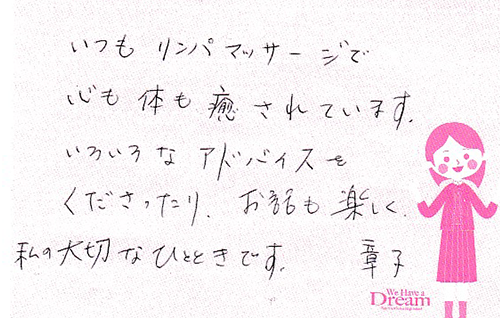 いつも リンパマッサージで
心も 体も 癒 されています。
いろいろな アドバイスを
くださったり、お話も 楽しく、
私の大切なひとときです。 章子
We Have a
Dream